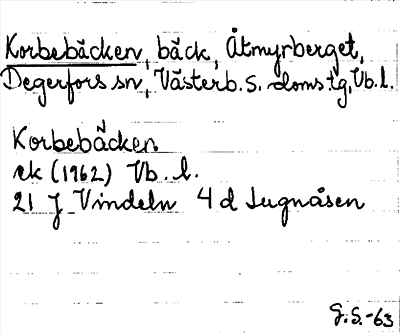 Korbebäcken, bäck, Åtmyrberget,
Degerfors sn, Västerb. s. doms tg, Vb. l.
Korbebäcken
rk (1962) Vb. l.
21 J Vindeln 4 d Lugnåsen
G.S.-63